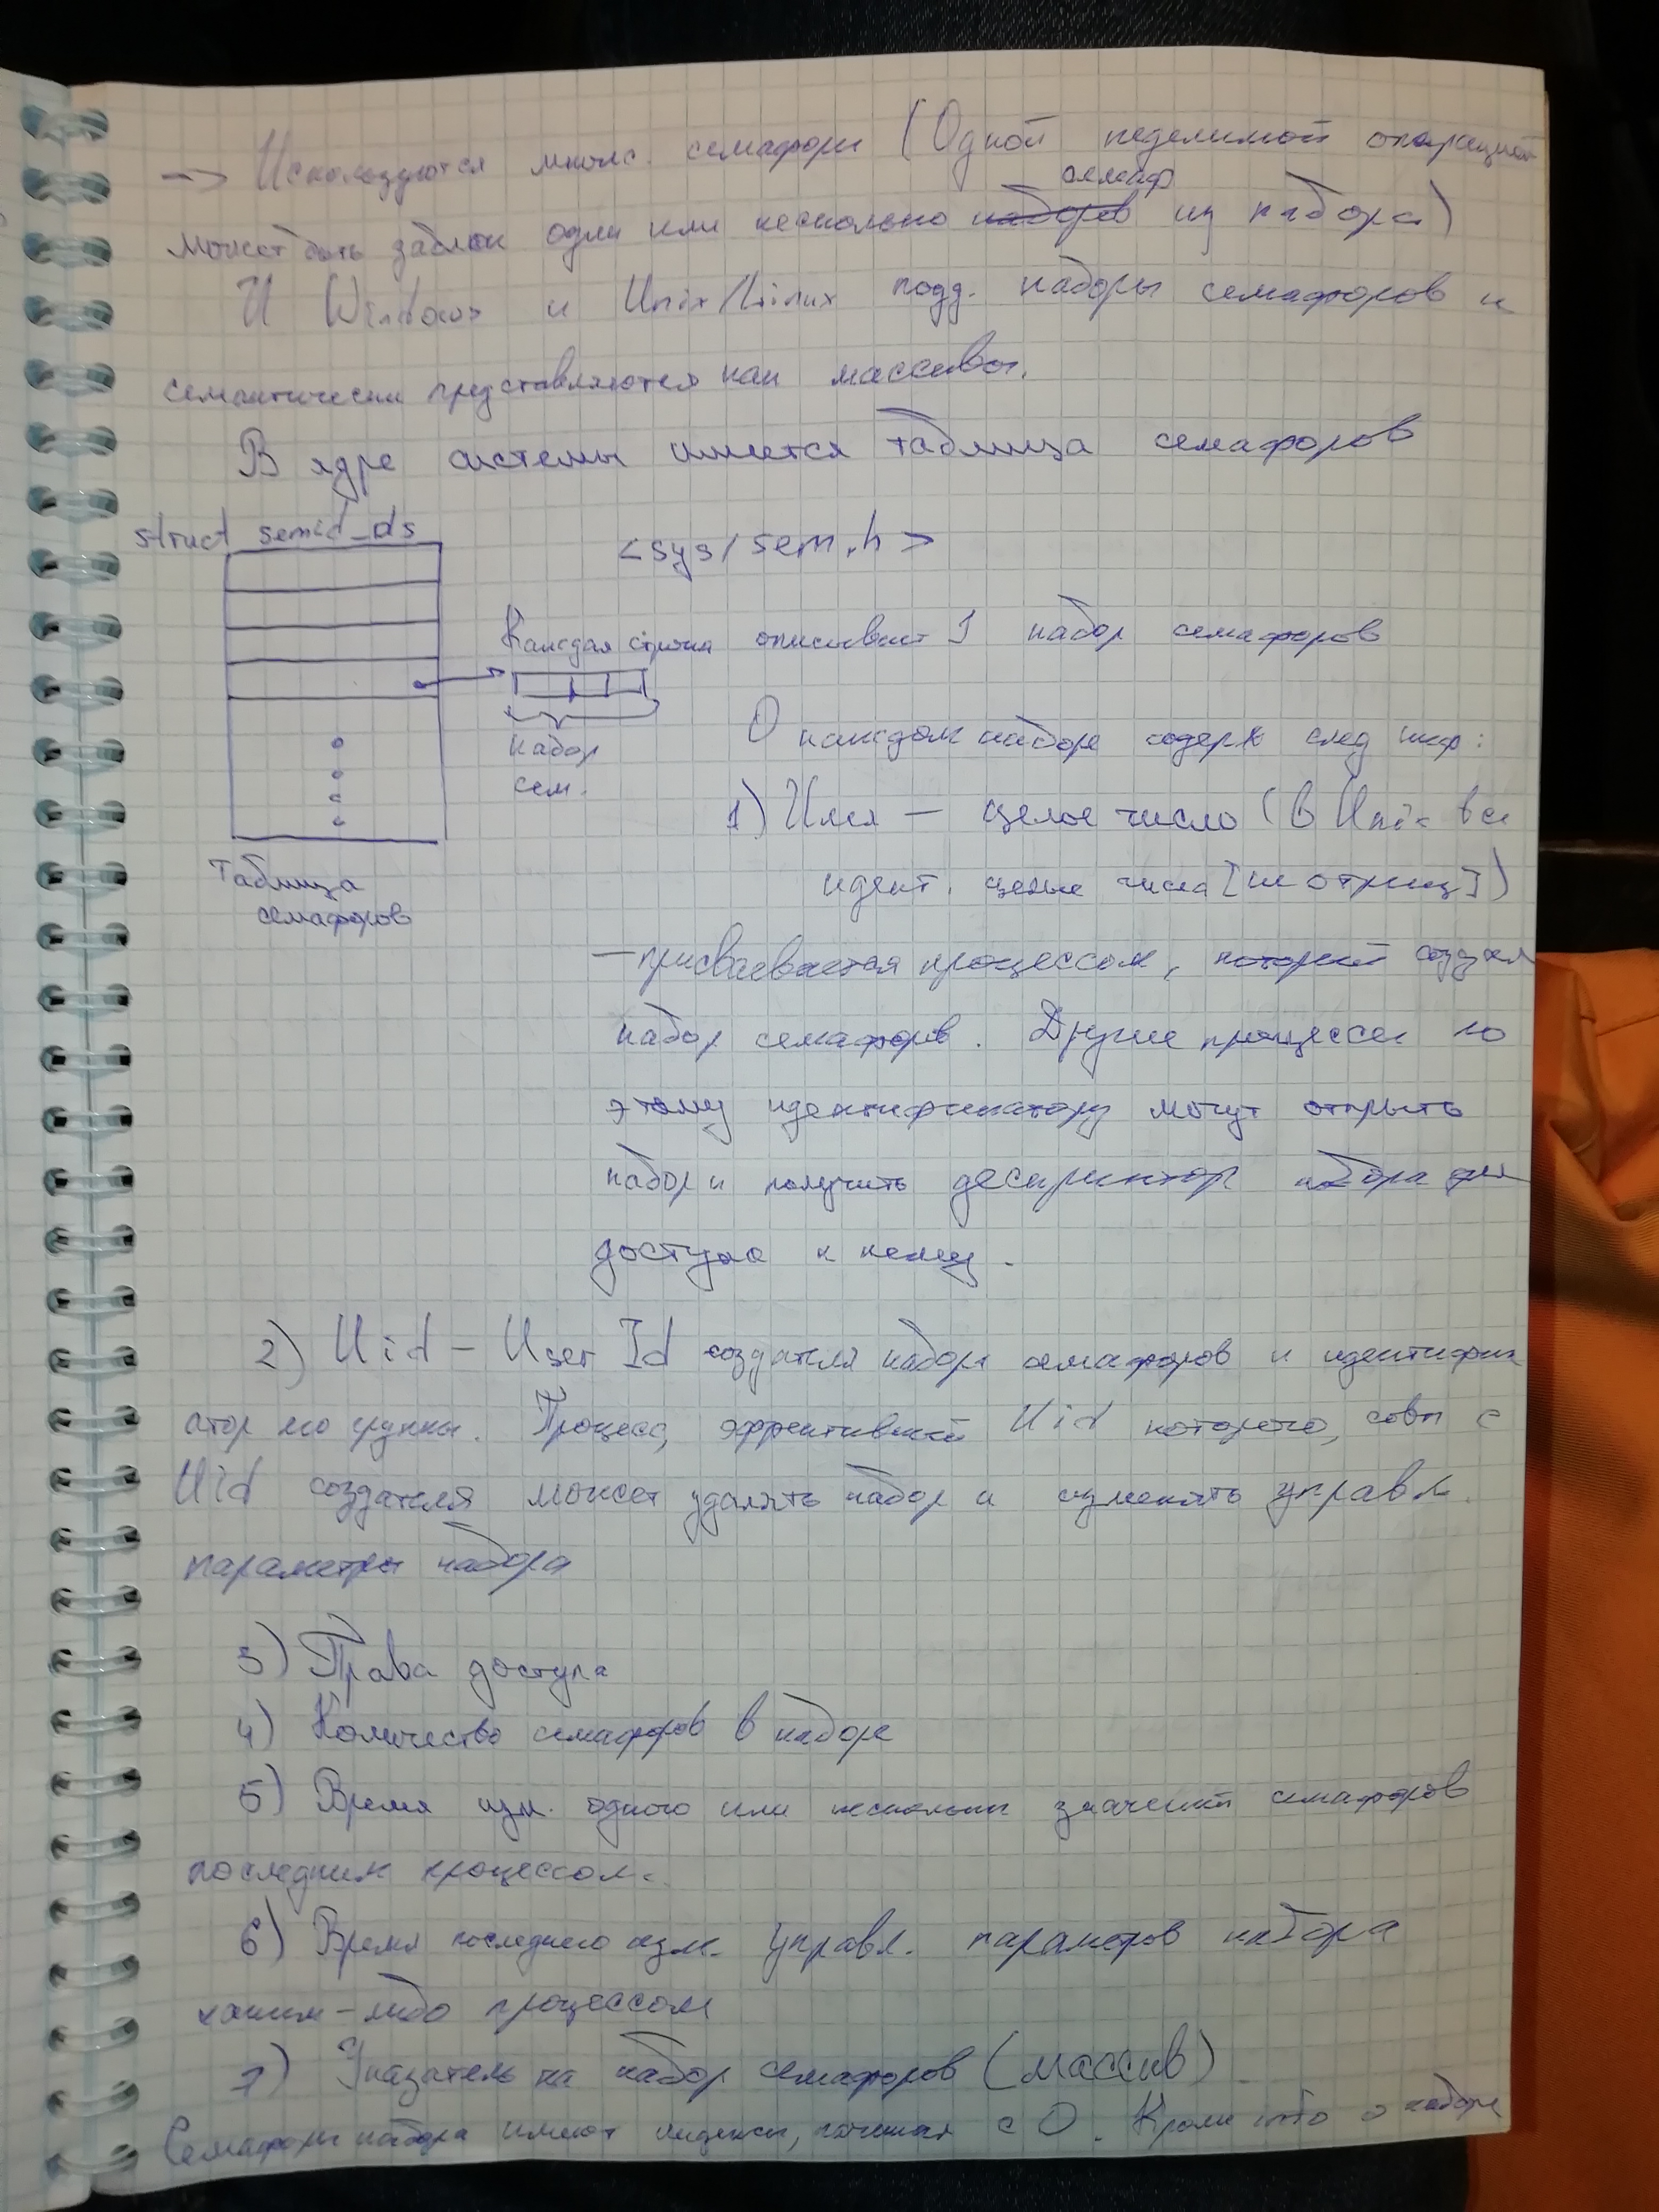 -> Используются множ. семафоры (Одной неделимой операцией
семаф
может быть заблок один или несколько наборов из набора)
И Windows и Unix/Linux подд. наборы семафоров и
семантически представляются как массивы.
В ядре системы имеется таблица семафоров
struct semid_ds
<sys/sem.h>
Каждая строка описывает 1 набор семафоров
набор
сем.
О каждом наборе содерж след инф:
1) Имя — целое число (в Unix все
идент. целые числа [не отриц])
Таблица
семафоров
— присваивается процессом, который создал
набор семафоров. Другие процессы по
этому идентификатору могут открыть
набор и получить дескриптор набора для
доступа к нему.
2) Uid — User Id создателя набора семафоров и идентифик
атор его группы. Процесс, эффективный Uid которого, совп с
Uid создателя может удалять набор и изменять управл.
параметры набора
3) Права доступа
4) Количество семафоров в наборе
5) Время изм. одного или нескольких значений семафоров
последним процессом.
6) Время последнего изм. управл. параметров набора
каким-либо процессом
7) Указатель на набор семафоров (массив).
Семафоры набора имеют индексы, начиная с 0. Кроме того о наборе